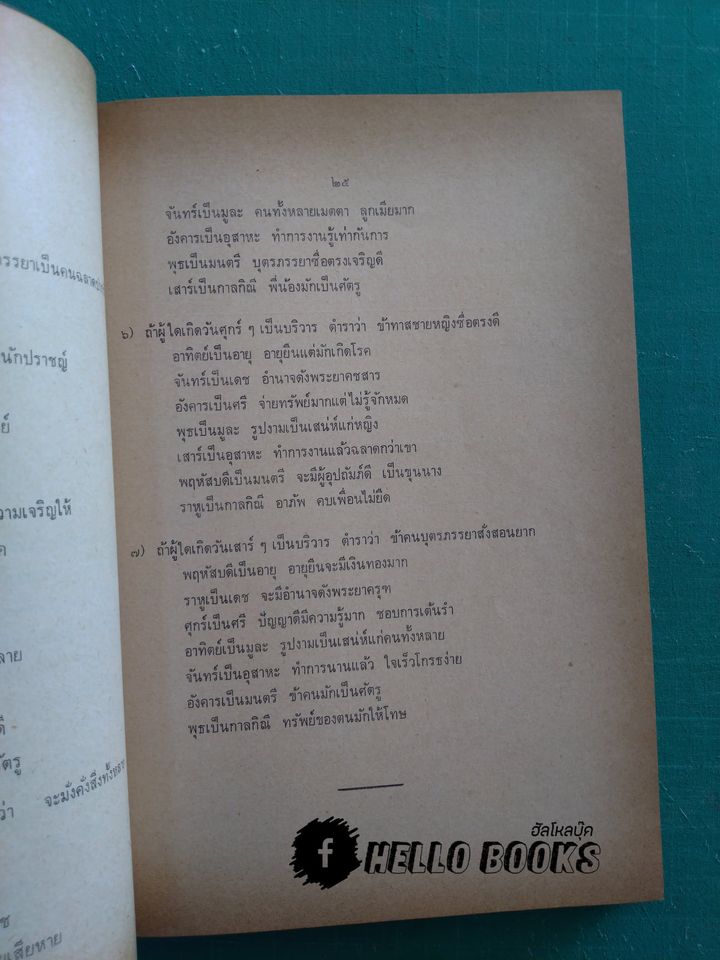 รรยาเป็นคนฉลาด
นักปราชญ์
ย์
วามเจริญให้
ด
ลาย
ดี
ัตรู
ว่า จะมั่งคั่งสิ่งทั้งหลาย
ช
เสียหาย
๒๕
จันทร์เป็นมูละ คนทั้งหลายเมตตา ลูกเมียมาก
อังคารเป็นอุสาหะ ทำการงานรู้เท่ากันการ
พุธเป็นมนตรี บุตรภรรยาซื่อตรงเจริญดี
เสาร์เป็นกาลกิณี พี่น้องมักเป็นศัตรู
๖) ถ้าผู้ใดเกิดวันศุกร์ ๆ เป็นบริวาร ตำราว่า ข้าทาสชายหญิงซื่อตรงดี
อาทิตย์เป็นอายุ อายุยืนแต่มักเกิดโรค
จันทร์เป็นเดช อำนาจดังพระยาคชสาร
อังคารเป็นศรี จ่ายทรัพย์มากแต่ไม่รู้จักหมด
พุธเป็นมูละ รูปงามเป็นเสน่ห์แก่หญิง
เสาร์เป็นอุสาหะ ทำการงานแล้วฉลาดกว่าเขา
พฤหัสบดีเป็นมนตรี จะมีผู้อุปถัมภ์ดี เป็นขุนนาง
ราหูเป็นกาลกิณี อาภัพ คบเพื่อนไม่ยืด
๗) ถ้าผู้ใดเกิดวันเสาร์ ๆ เป็นบริวาร ตำราว่า ข้าคนบุตรภรรยาสั่งสอนยาก
พฤหัสบดีเป็นอายุ อายุยืนจะมีเงินทองมาก
ราหูเป็นเดช จะมีอำนาจดังพระยาครุฑ
ศุกร์เป็นศรี ปัญญาดีมีความรู้มาก ชอบการเต้นรำ
อาทิตย์เป็นมูละ รูปงามเป็นเสน่ห์แก่คนทั้งหลาย
จันทร์เป็นอุสาหะ ทำการนานแล้ว ใจเร็วโกรธง่าย
อังคารเป็นมนตรี ข้าคนมักเป็นศัตรู
พุธเป็นกาลกิณี ทรัพย์ของตนมักให้โทษ
ฮัลโหลบุ๊ค
f HELLO BOOKS